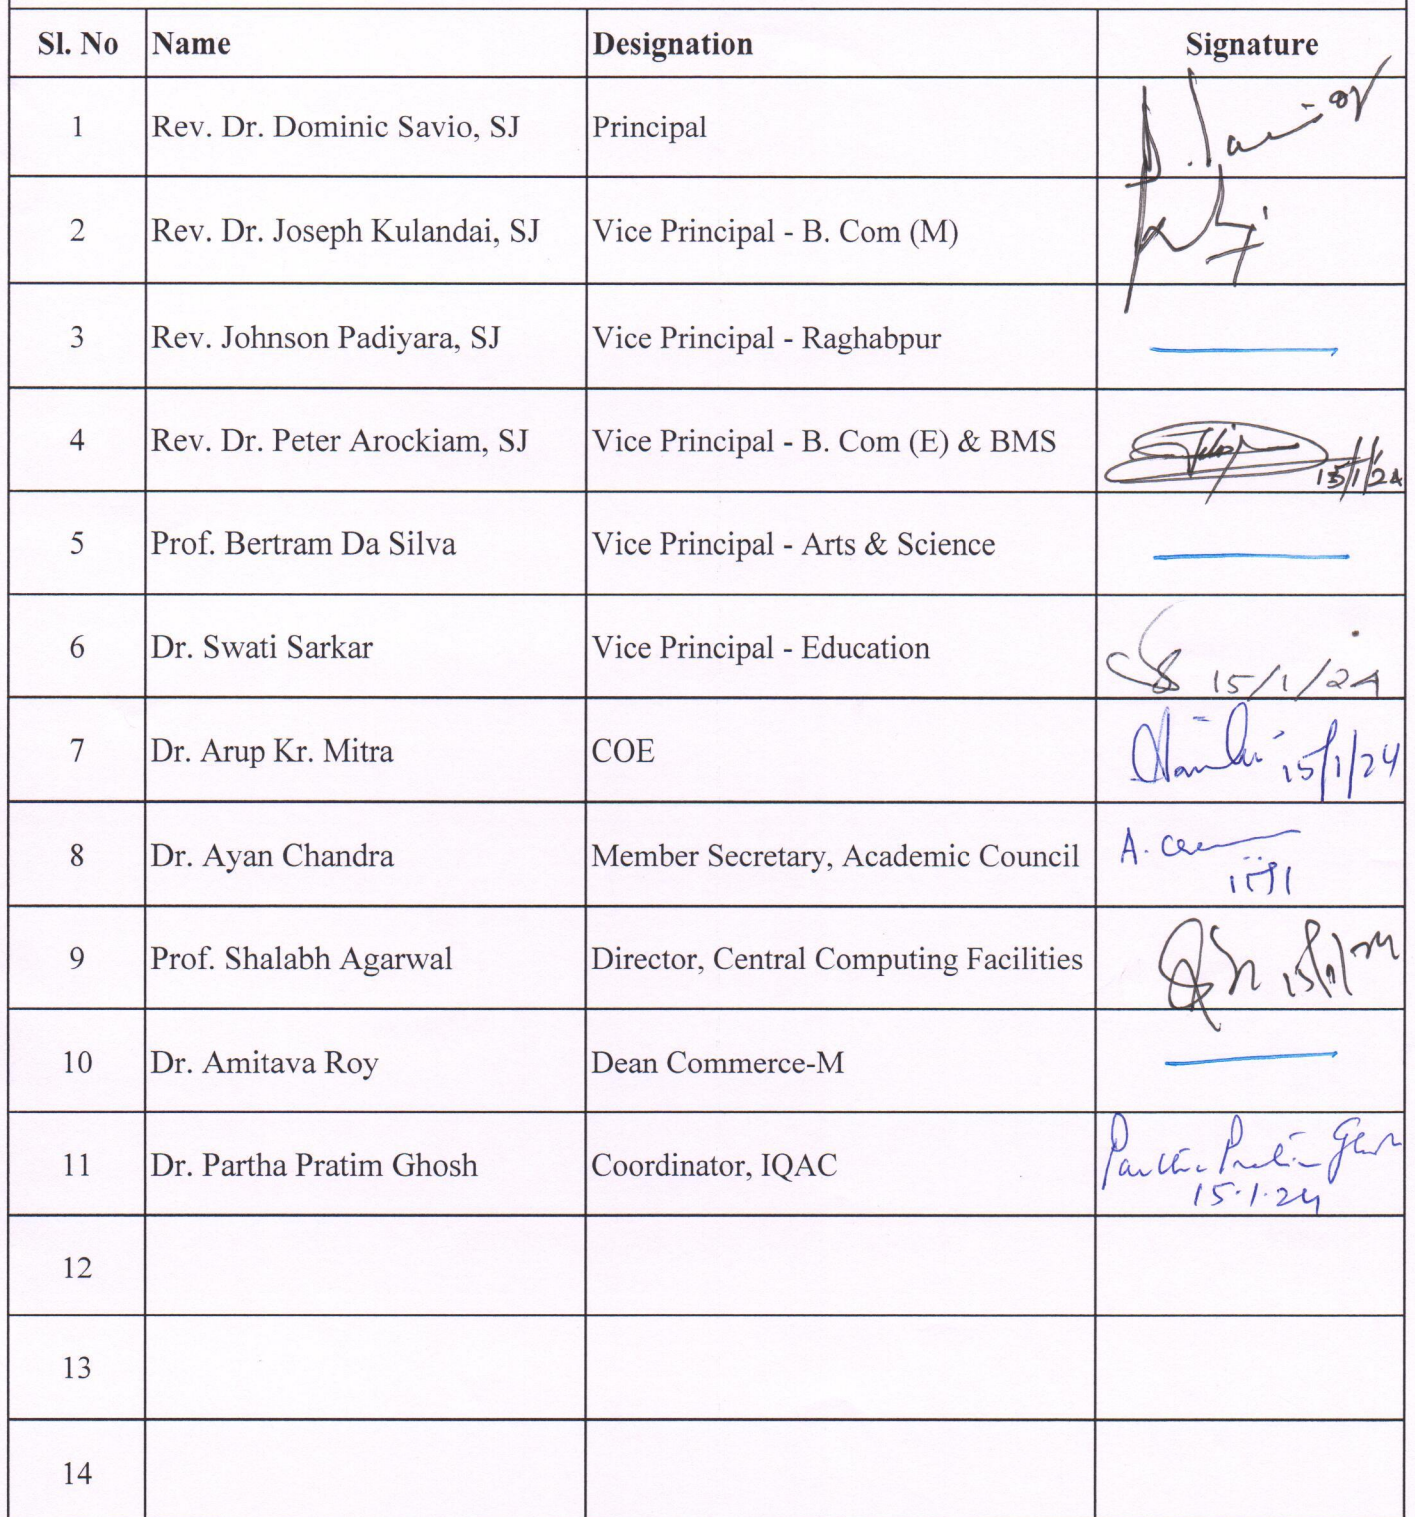 Sl. No Name Designation Signature
1 Rev. Dr. Dominic Savio, SJ Principal D. Savio SJ
2 Rev. Dr. Joseph Kulandai, SJ Vice Principal - B. Com (M)
3 Rev. Johnson Padiyara, SJ Vice Principal - Raghabpur
4 Rev. Dr. Peter Arockiam, SJ Vice Principal - B. Com (E) & BMS 15/1/24
5 Prof. Bertram Da Silva Vice Principal - Arts & Science
6 Dr. Swati Sarkar Vice Principal - Education 15/1/24
7 Dr. Arup Kr. Mitra COE 15/1/24
8 Dr. Ayan Chandra Member Secretary, Academic Council A.
9 Prof. Shalabh Agarwal Director, Central Computing Facilities 15/1/24
10 Dr. Amitava Roy Dean Commerce-M
11 Dr. Partha Pratim Ghosh Coordinator, IQAC Partha Pratim Ghosh
15.1.24
12
13
14